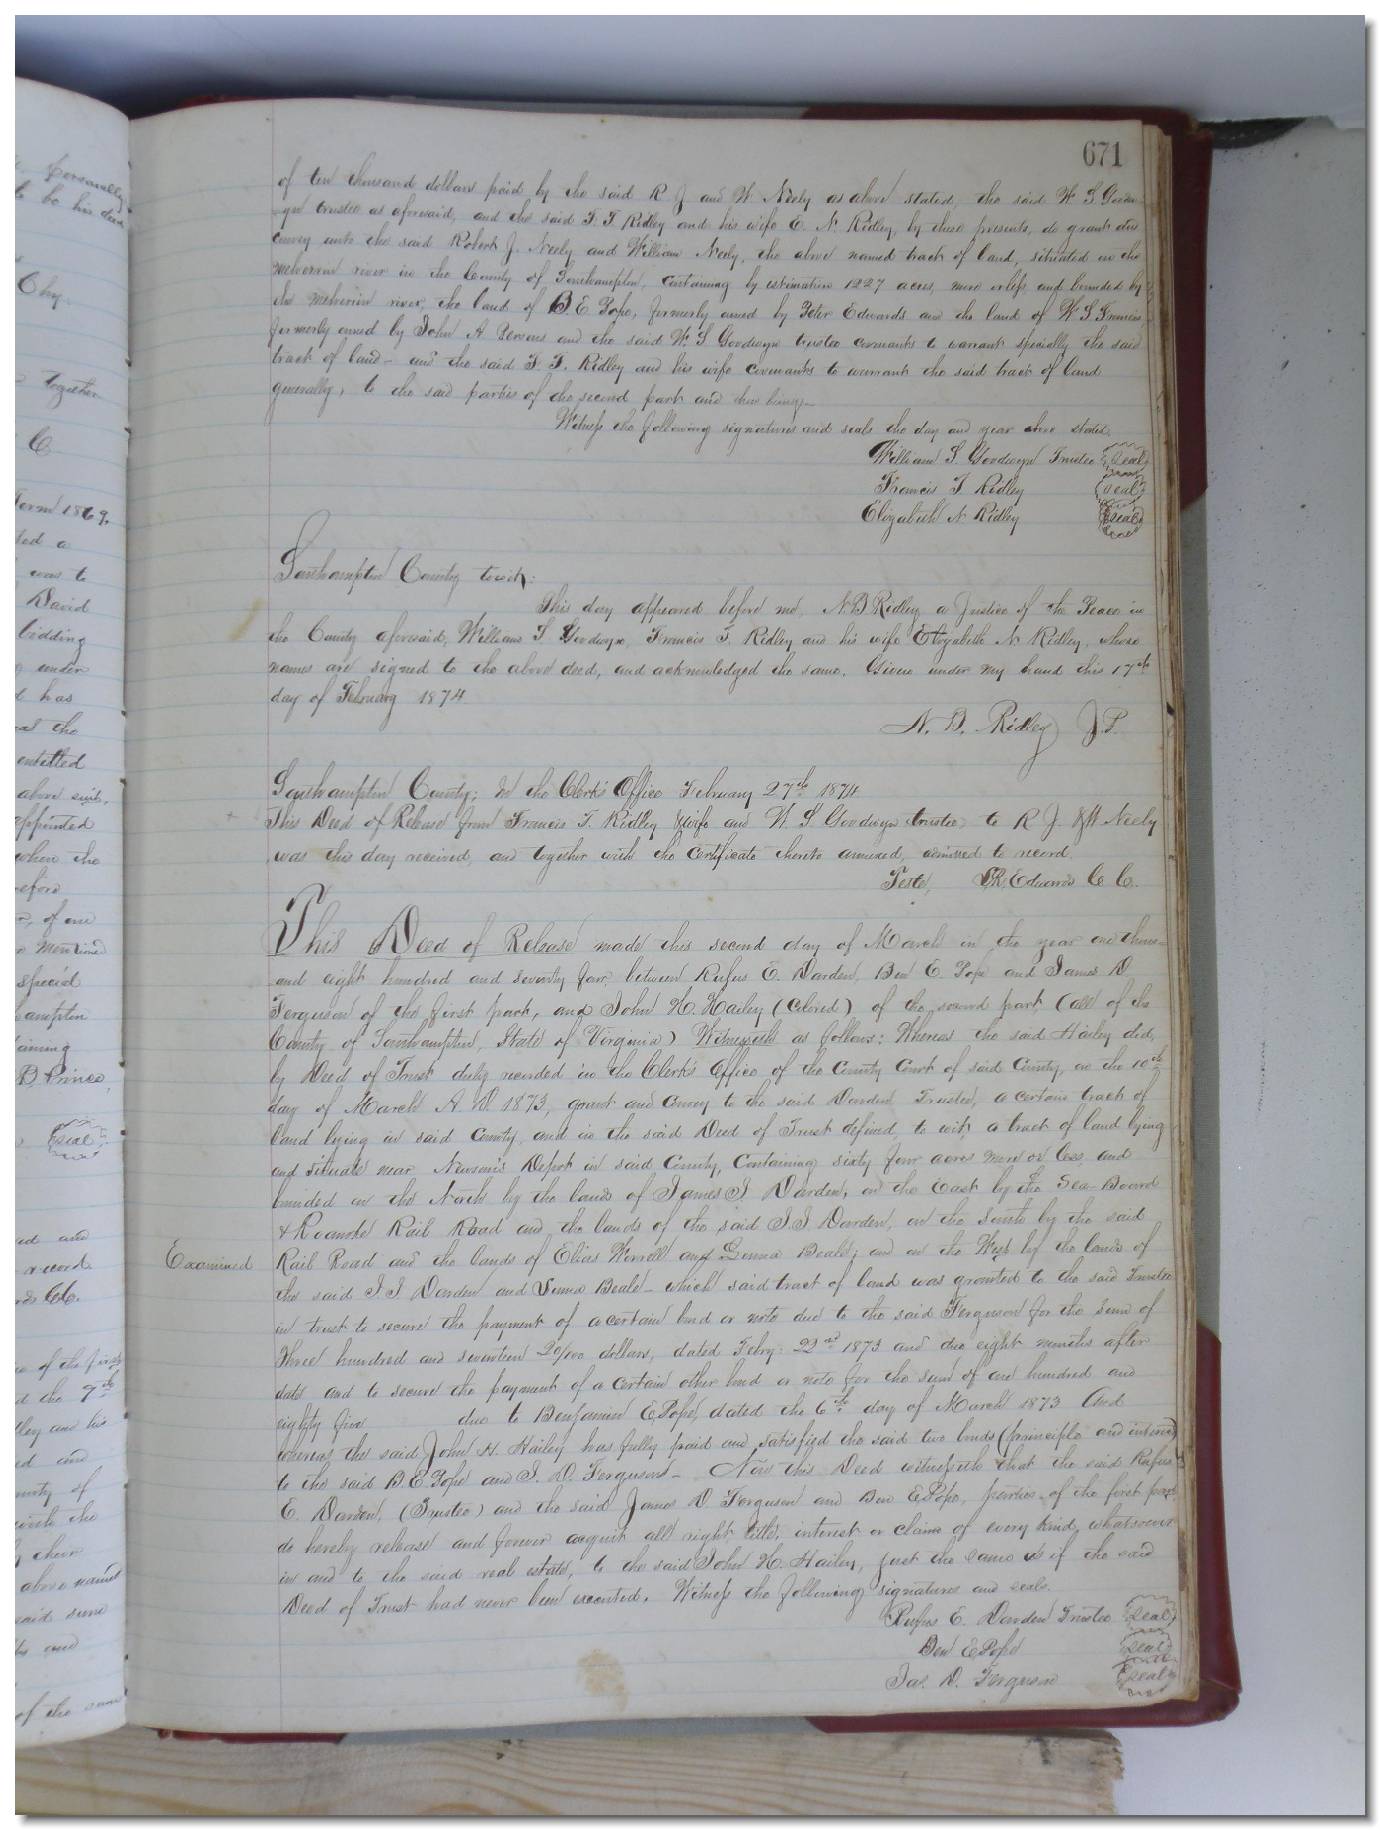 671
of ten thousand dollars paid by the said R J and W. Neely as above stated, the said W. S. Goodw
yn trustee as aforesaid, and the said F. T. Ridley and his wife E. N. Ridley, by these presents, do grant and
convey unto the said Robert J. Neely and William Neely, the above named tract of land, situated on the
meherrin river in the County of Southampton, containing by estimation 1227 acres, more or less, and bounded by
the meherrin river, the land of B. E. Pope, formerly owned by Peter Edwards and the land of W S Francis,
formerly owned by John A Persons and the said W. S Goodwyn trustee covenants to warrant specially the said
tract of land - and the said F. T. Ridley and his wife covenants to warrant the said tract of land
generally, to the said parties of the second part and their heirs.
Witness the following signatures and seals the day and year above stated.
William S. Goodwyn Trustee seal
Francis T. Ridley seal
Elizabeth N. Ridley seal
Southampton County towit:
This day appeared before me, N. B Ridley a Justice of the Peace in
the County aforesaid, William S. Goodwyn, Francis T. Ridley and his wife Elizabeth N. Ridley, whose
names are signed to the above deed, and acknowledged the same. Given under my hand this 17th
day of February 1874.
N. B. Ridley J. P.
Southampton County; In the Clerk's Office February 27th 1874
This Deed of Release from Francis T. Ridley & wife and W. S. Goodwyn trustee to R J. & W Neely
was this day received, and together with the certificate thereto annexed, admitted to record.
Teste, Edwards C. C.
This Deed of Release made this second day of March in the year one thous-
and eight hundred and seventy four, between Rufus E. Darden, Ben E. Pope and James D.
Ferguson of the first part, and John H. Hailey (Colored) of the second part, (all of the
County of Southampton, State of Virginia) Witnesseth as follows: Whereas the said Hailey did,
by Deed of Trust duly recorded in the Clerk's Office of the County Court of said County, on the 10th
day of March A. D. 1873, grant and convey to the said Darden Trustee, a certain tract of
land lying in said County, and in the said Deed of Trust defined, to wit, a tract of land lying
and situate near Newsom's Depot in said County, Containing sixty four acres more or less, and
bounded on the North by the lands of James S Darden, on the East by the Sea Board
& Roanoke Rail Road and the lands of the said J. S Darden, on the South by the said
Examined Rail Road and the lands of Elias Worrell and Beale; and on the West by the lands of
the said J. S Darden and Beale - which said tract of land was granted to the said Trustee
in trust to secure the payment of a certain bond or note due to the said Ferguson for the sum of
Three hundred and seventeen 20/100 dollars, dated Febry: 22nd 1873 and due eight months after
date and to secure the payment of a certain other bond or note for the sum of one hundred and
eighty five due to Benjamin E Pope, dated the 6th day of March 1873 And
whereas the said John H. Hailey has fully paid and satisfied the said two bonds (principle and interest)
to the said B. E. Pope and J. D. Ferguson - Now this Deed witnesseth that the said Rufus
E. Darden, (Trustee) and the said James D Ferguson and Ben E Pope, parties of the first part
do hereby release and forever acquit all right title, interest or claim of every kind, whatsoever
in and to the said real estate, to the said John H. Hailey, just the same as if the said
Deed of Trust had never been executed. Witness the following signatures and seals.
Rufus E. Darden Trustee seal
Ben E Pope seal
Jas. D. Ferguson seal